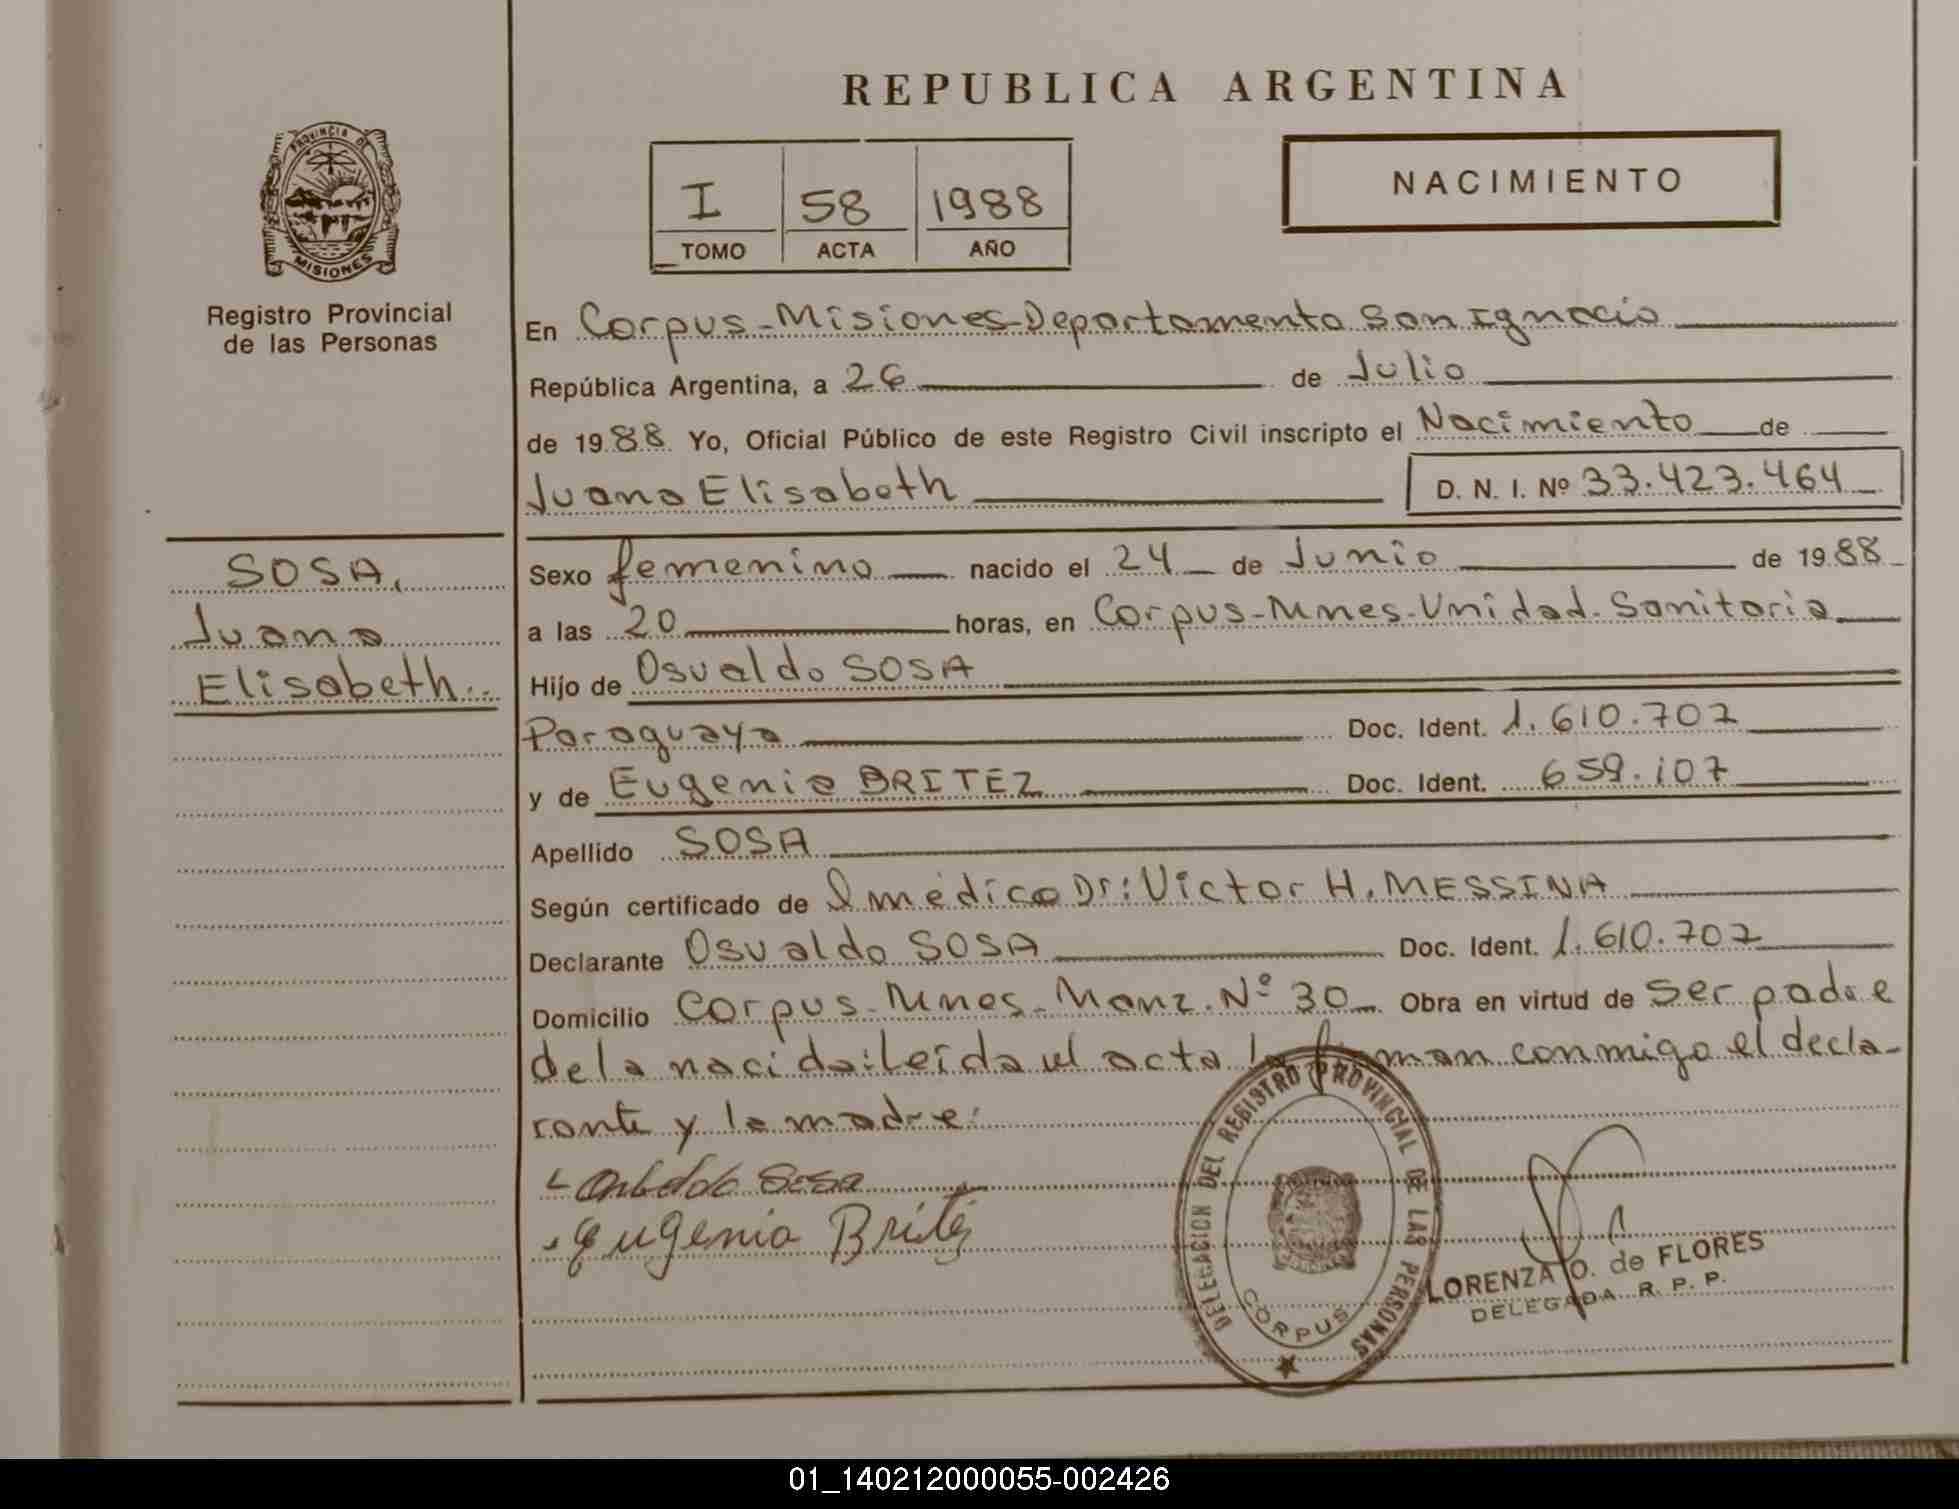 REPUBLICA ARGENTINA
PROVINCIA DE
MISIONES
Registro Provincial
de las Personas
I 58 1988
TOMO ACTA AÑO
NACIMIENTO
En Corpus-Misiones-Departamento San Ignacio
República Argentina, a 26 de Julio
de 1988 Yo, Oficial Público de este Registro Civil inscripto el Nacimiento de
Juana Elisabeth D. N. I. Nº 33.423.464
SOSA,
Juana
Elisabeth
Sexo femenino nacido el 24 de Junio de 1988
a las 20 horas, en Corpus-Mnes-Unidad-Sanitaria
Hijo de Osvaldo SOSA
Paraguaya Doc. Ident. 1.610.702
y de Eugenia BRITEZ Doc. Ident. 659.107
Apellido SOSA
Según certificado de l médico Dr: Victor H. MESSINA
Declarante Osvaldo SOSA Doc. Ident. 1.610.702
Domicilio Corpus-Mnes-Manz. Nº 30 Obra en virtud de ser padre
de la nacida: Leída el acta la firman conmigo el decla-
rante y la madre:
Osbaldo Sosa
Eugenia Britez
DELEGACION DEL REGISTRO PROVINCIAL DE LAS PERSONAS
CORPUS
LORENZA O. de FLORES
DELEGADA R. P. P.
01_140212000055-002426